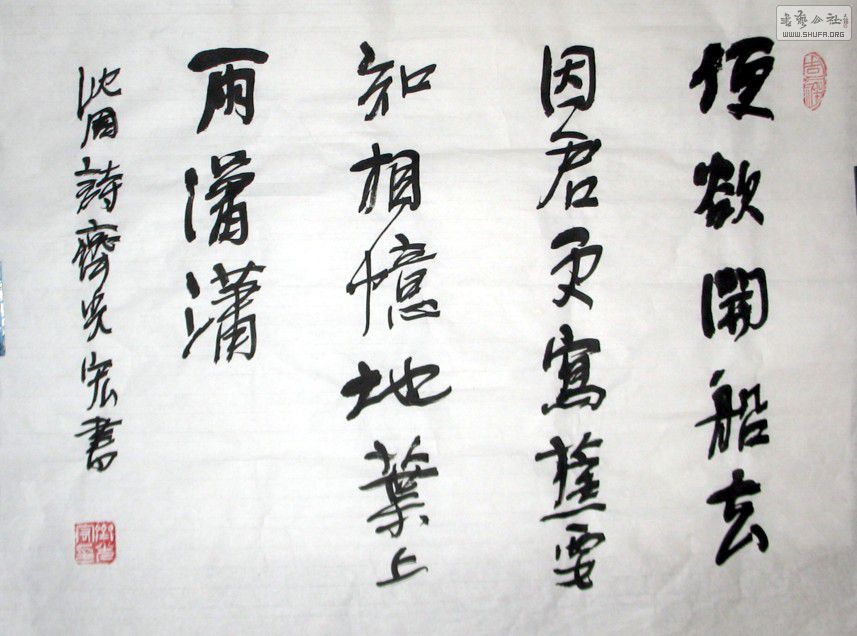 便欲開船去
因君更寫蕉要
知相憶地葉上
雨瀟瀟
沈周詩齊光宏書
吉祥
書藝公社
WWW.SHUFA.ORG